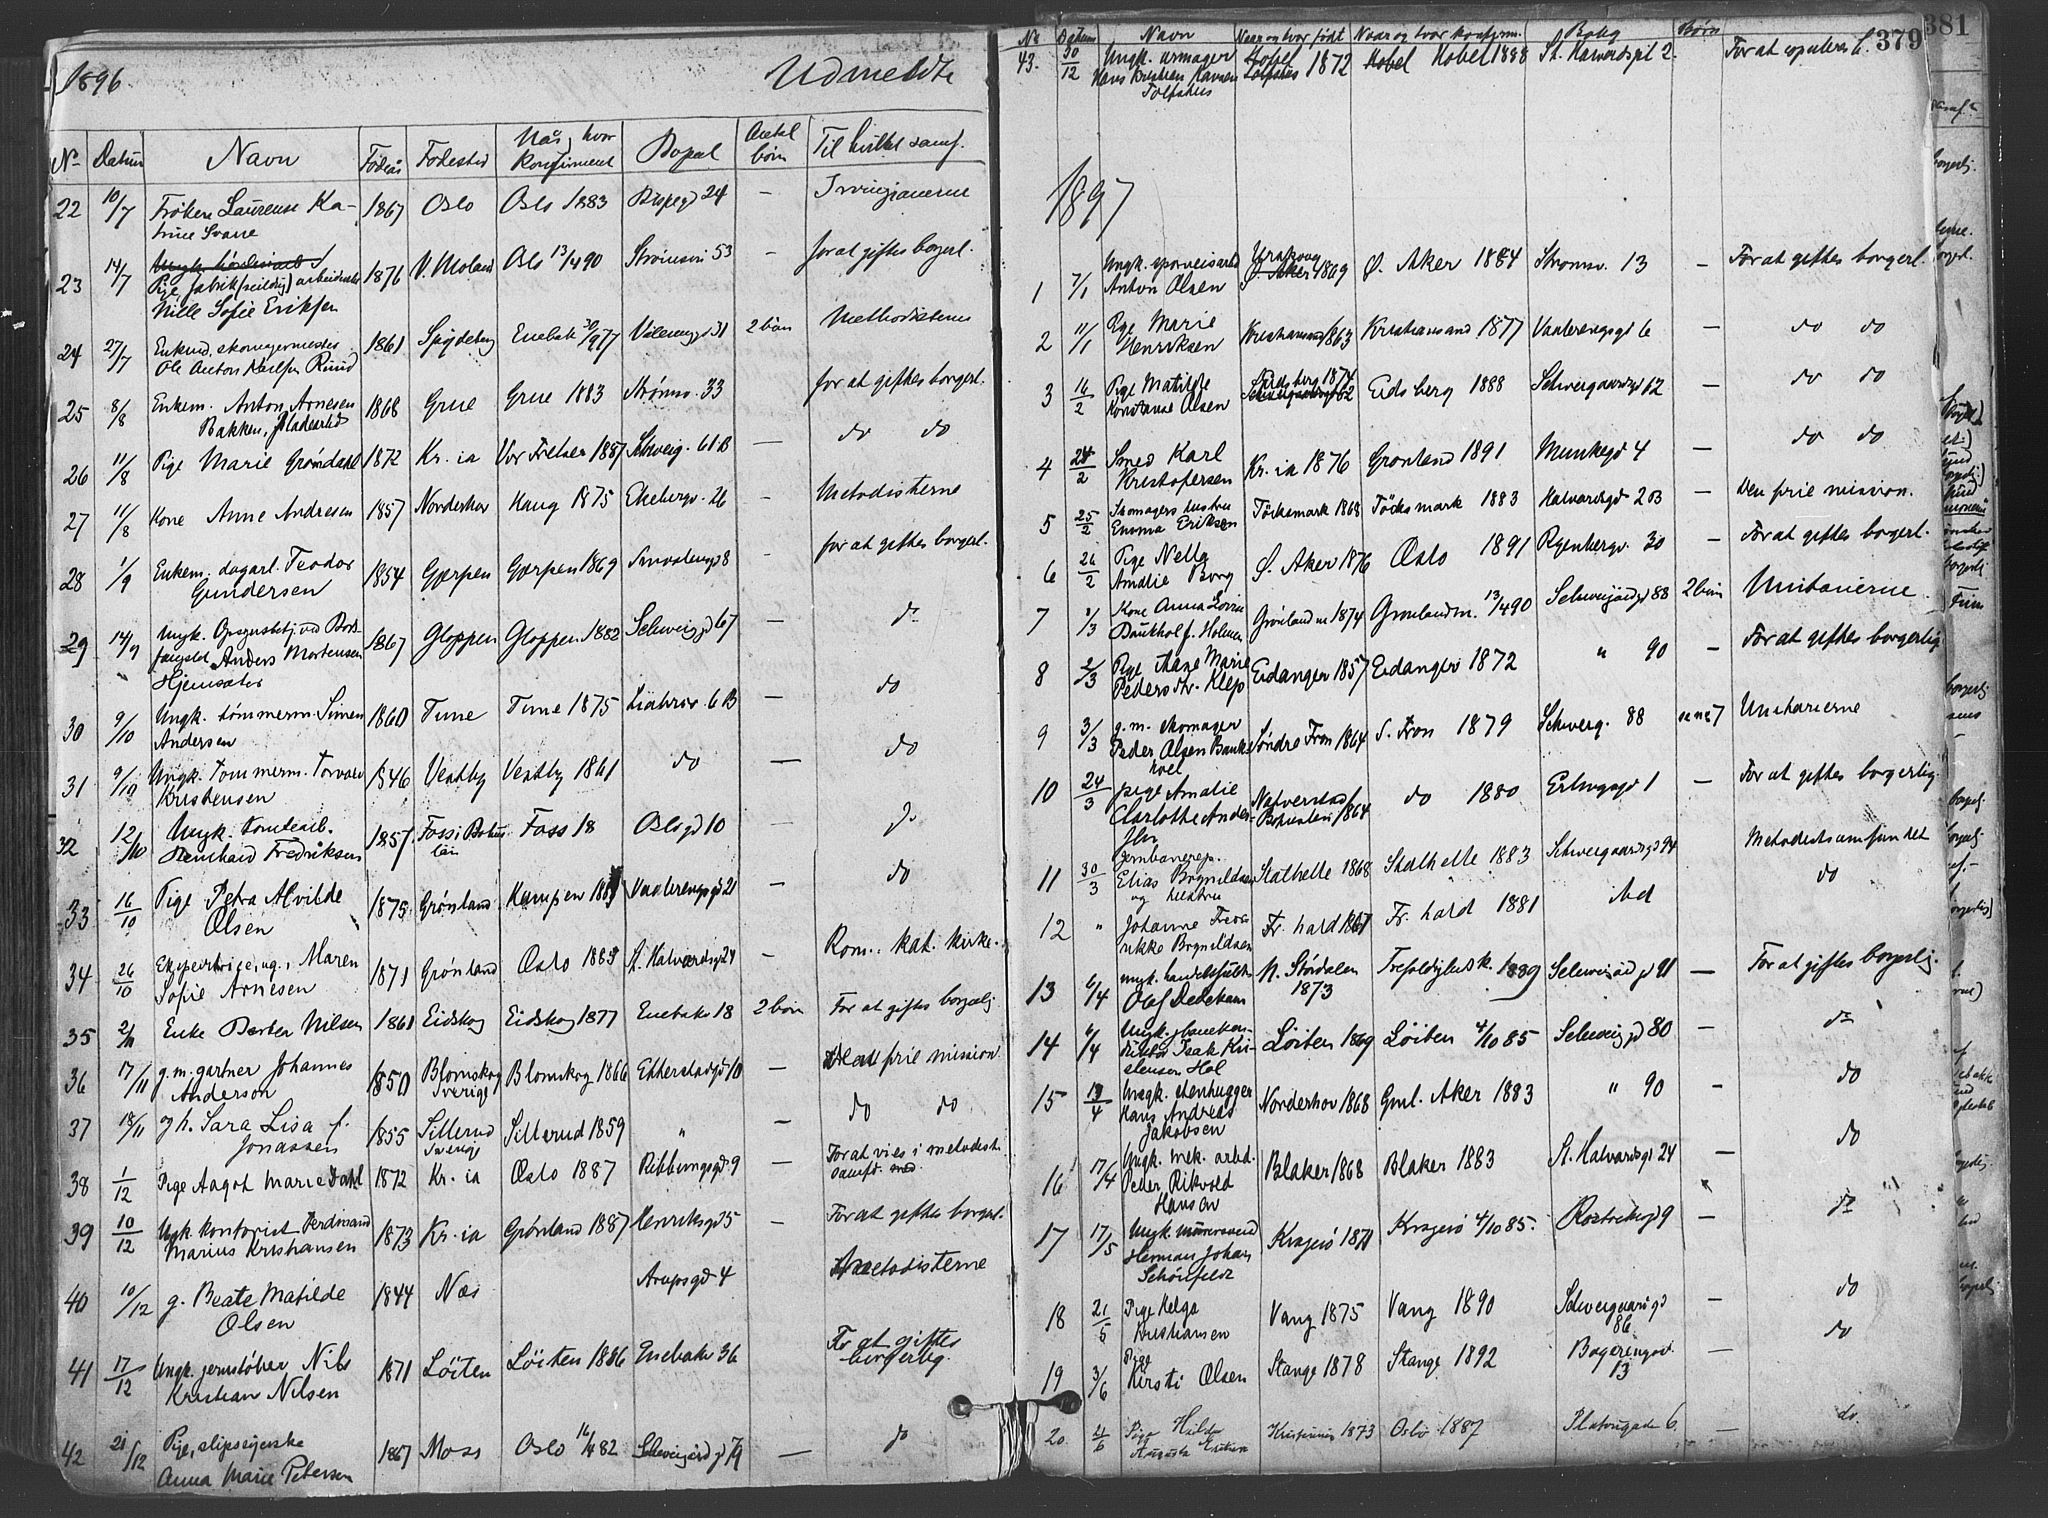 1896 Udmeldte
No Datum Navn Fødeår Fødested Når, hvor konfirmeret Bopæl Antal børn Til hvilket samf.
22 10/7 Frøken Laurense Ka- 1867 Oslo Oslo 1883 Bispegd 24 — Irvingianerne
trine Svarre
23 14/7 Pige, fabrik arbeiderske 1876 V. Moland Oslo 13/4 90 Strømsvei 53 — for at giftes borgerl.
Nille Sofie Eriksen
24 27/7 Enkemd, skomagermester 1861 Spydeberg Enebak 30/9 77 Vålerenggd 31 2 børn Methodisterne
Ole Anton Karlsen Ruud
25 8/8 Enkem. Anton Arnesen 1868 Grue Grue 1883 Strømsv. 33 for at giftes borgerl.
Bakken, pladearbd
26 11/8 Pige Marie Grøndahl 1872 Kr.ia Vor Frelser 1887 Schweig. 61 B — do do
27 11/8 Kone Anne Andresen 1857 Norderhov Haug 1875 Ekebergv. 26 — Metodisterne
28 1/9 Enkem. dagarb. Teodor 1854 Gjerpen Gjerpen 1869 Smalenggd 8 — for at giftes borgerl.
Gundersen
29 14/9 Ungk. Opsynsbetj. ved Bods- 1867 Gloppen Gloppen 1882 Schweiggd 67 — do
fængslet Anders Mortensen
Hjemsæter
30 9/10 Ungk. tømmerm. Simen 1860 Tune Tune 1875 Liabrov. 6 B — do
Andersen
31 9/10 Ungk. Tømmerm. Torvald 1846 Vestby Vestby 1861 do — do
Kristensen
32 12/10 Ungk. Tomtearb. 1857 Foss i Bohus Foss 18 Oslogd 10 — do
Bernhard Fredriksen len
33 16/10 Pige Petra Alvilde 1875 Grønland Kampen 1889 Vaalerenggd 21 — do
Olsen
34 26/10 Expeditrice, ug., Maren 1871 Grønland Oslo 1883 St. Halvardsgd 24 — Rom. kat. kirke.
Sofie Arnesen
35 2/11 Enke Berthea Nilsen 1861 Eidskog Eidskog 1877 Enebakv 18 2 børn For at giftes borgerlig
36 17/11 g.m. gartner Johannes 1850 Blomskog Blomskog 1866 Etterstadgd 10 — Den frie mission.
Anderson Sverige
37 18/11 g h. Sara Lisa f. 1855 Sillerud Sillerud 1859 " — do do
Jonassen Sverige
38 1/12 Pige Aagot Marie Dahl 1872 Kr.ia Oslo 1887 Ribbunggd. 9 — For at vies i metodist
samfd. med.
39 10/12 Ungk. kontorist Ferdinand 1873 Kr.ia Grønland 1887 Henriksgd 5 — For at giftes borgerl.
Marius Kristiansen
40 10/12 g. Beate Matilde 1844 Næs Arupsgd 4 Metodisterne
Olsen
41 17/12 Ungk. jernstøber Nils 1871 Løiten Løiten 1886 Enebakv 36 For at giftes
Kristian Nilsen borgerlig.
42 21/12 Pige, slipssyerske 1867 Moss Oslo 16/4 82 Schweigårdgd 79 — do
Anna Marie Petersen
381
379
No Datum Navn Naar og hvor født Naar og hvor konfirm. Bolig Børn
43. 30/12 Ungk. urmager Hobøl 1872 Hobøl Hobøl 1888 St. Halvardspl 2. For at copuleres b.
Hans Kristian Hansen
Tolfshus
1897
1 7/1 Ungk. sporveisarbd Ø. Aker 1869 Ø. Aker 1884 Strømsv. 13 — For at giftes borgerl.
Anton Olsen
2 11/1 Pige Marie Kristiansand 1863 Kristiansand 1877 Vaalerenggd 6 — do do
Henriksen
3 16/2 Pige Matilde Eidsberg 1874 Eidsberg 1888 Schweigaardsgd 62 — do do
Konstanse Olsen
4 24/2 Smed Karl Kr.ia 1876 Grønland 1891 Munkegd 4 — do do
Kristofersen
5 25/2 Skomagers hustru Töcksmark 1868 Töcksmark 1883 Halvardsgd 20 B — Den frie mission.
Emma Eriksen
6 26/2 Pige Nella Ø. Aker 1876 Oslo 1891 Ryenbergv. 30 — For at giftes borgerl.
Amalie Borg
7 1/3 Kone Anna Lovise Grønland m 1874 Grønland m. 13/4 90 Schweigårdgd 88 2 børn Unitarierne
Baukhol f. Holmen
8 2/3 Pige Aage Marie Eidanger 1857 Eidanger 1872 " 90 — For at giftes borgerlig.
Pedersdtr. Klep
9 3/3 g.m. skomager Søndre Fron 1864 S. Fron 1879 Schweig. 88 se no 7 Unitarierne
Peder Olsen Bauke
hoel
10 24/3 pige Amalie Naverstad 1864 do 1880 Erlingsgd 1 — For at giftes borgerlig.
Charlothe Ander- Bohuslen
sen
11 30/3 Jernbanerep. Stathelle 1868 Stathelle 1883 Schweigaardsgd 94 Metodistsamfundet
Elias Brynildsen
og hustru
12 " Johanne Fred- Fr. hald 1867 Fr. hald 1881 ibd do
rikke Brynildsen
13 6/4 Ungk. handelsfuldm. N. Stordalen Trefoldighedsk. 1889 Schweigårdgd 91 — For at giftes borgerlig.
Olaf Dedekam 1873
14 6/4 Ungk. Løiten 1869 Løiten 4/10 85 Schweiggd 80 — do
Isak Kri-
stensen Hol
15 13/4 Ungk. stenhugger Norderhov 1868 Gml. Aker 1883 " 90 — do
Hans Andreas
Jakobsen
16 17/4 Ungk. mek. arbd. Blaker 1868 Blaker 1883 St. Halvardsgd 24 — do
Peder Rikvold
Hansen
17 17/5 Ungk. murersvend Kragerø 1871 Kragerø 4/10 85. Rostockgd 9 — do
Herman Johan
Schønfeldt
18 21/5 Pige Helga Vang 1875 Vang 1890 Schweigaardsgd — do
Kristiansen 86
19 3/6 Pige Stange 1878 Stange 1892 Bøgerengvd. — do
Kirsti Olsen 13
20 21/6 Pige Hilda 1873 Oslo 1887 Platousgade 6 — do.
Augusta Eriksen